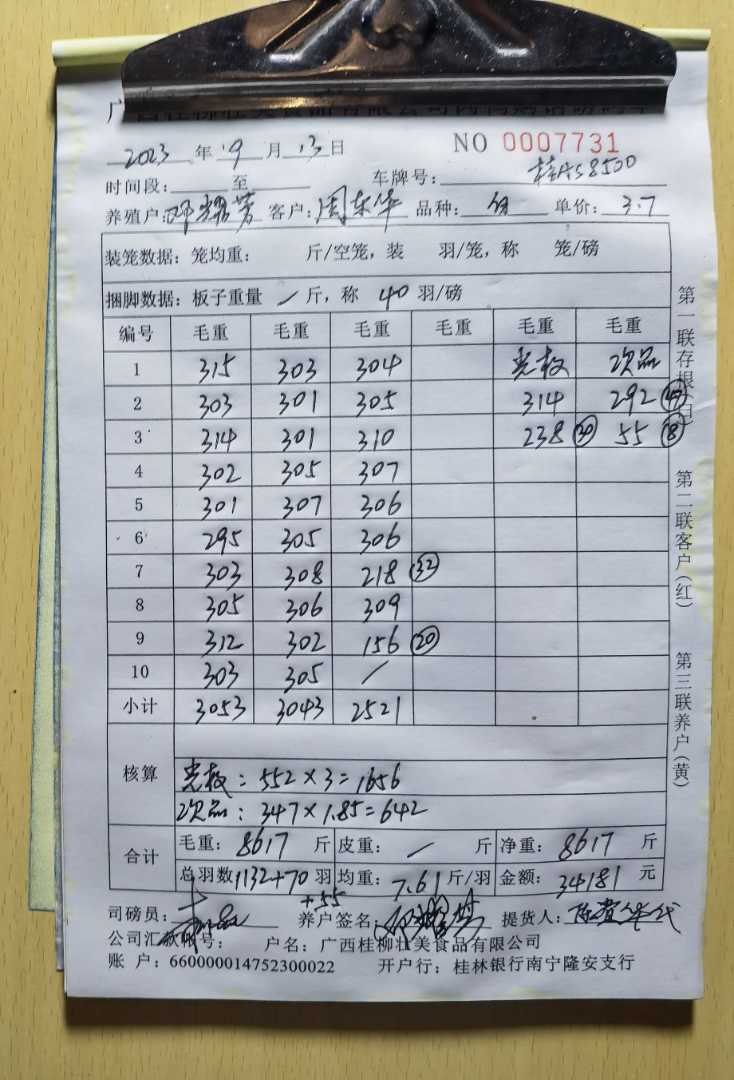 2023 年 9 月 13 日 NO 0007731
时间段: 至 车牌号: 桂AS8500
养殖户: 邓耀芳 客户: 周东华 品种: 白 单价: 3.7
装笼数据: 笼均重: 斤/空笼, 装 羽/笼, 称 笼/磅
捆脚数据: 板子重量 / 斤, 称 40 羽/磅
编号 毛重 毛重 毛重 毛重 毛重 毛重
1 315 303 304 光板 次品
2 303 301 305 314 292 (45)
3 314 301 310 238 (30) 55 (8)
4 302 305 307
5 301 307 306
6 295 305 306
7 303 308 218 (32)
8 305 306 309
9 312 302 156 (20)
10 303 305 /
小计 3053 3043 2521
核算
光板: 552×3=1656
次品: 347×1.85=642
合计
毛重: 8617 斤 皮重: / 斤 净重: 8617 斤
总羽数 1132+70 羽 均重: 7.61 斤/羽 金额: 34181 元
+55
司磅员: 养户签名: 提货人:
公司汇款账号: 户名: 广西桂柳壮美食品有限公司
账 户: 660000014752300022 开户行: 桂林银行南宁隆安支行
第一联存根(白)
第二联客户(红)
第三联养户(黄)